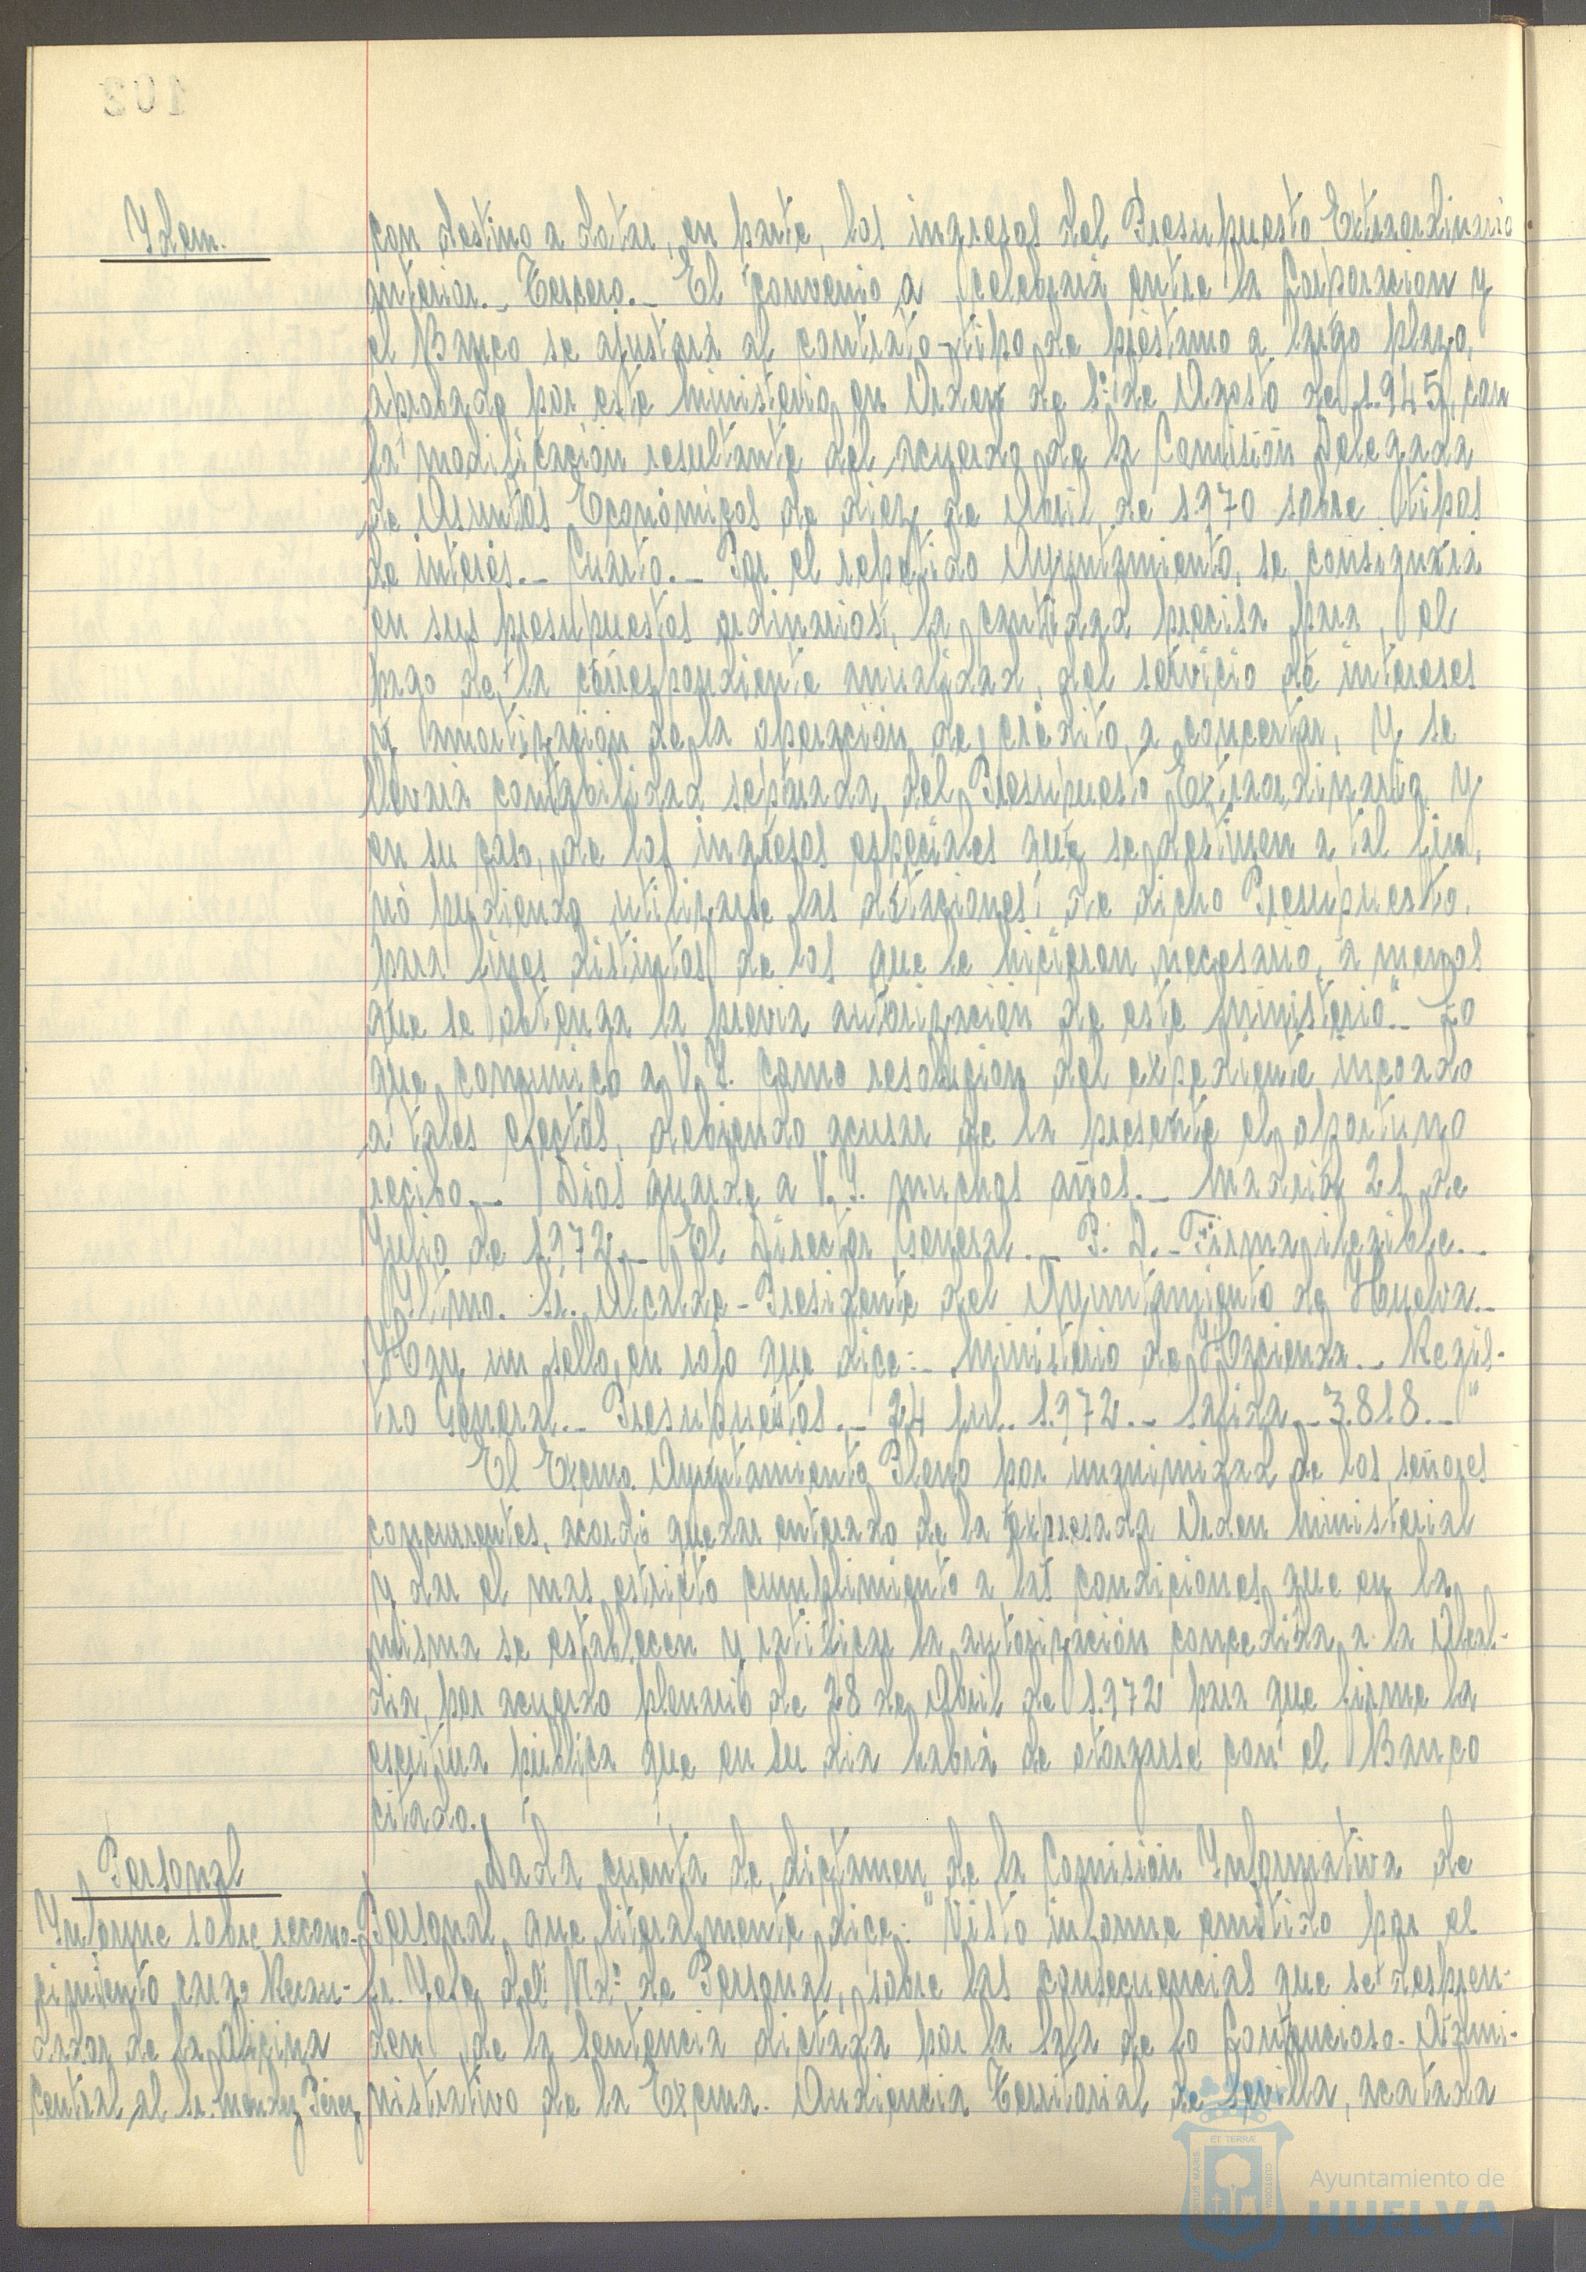 Idem.
con destino a dotar, en parte, los ingresos del Presupuesto Extraordinario
anterior.- Tercero.- El convenio a celebrará entre la Corporacion y
el Banco se ajustará al contrato-tipo de préstamo a largo plazo,
aprobado por este ministerio en Orden de 1º de Agosto de 1.945, con
la modificación resultante del acuerdo de la Comisión Delegada
de Asuntos Económicos de diez de Abril de 1970 sobre tipos
de interés.- Cuarto.- Por el repetido Ayuntamiento, se consignará
en sus presupuestos ordinarios, la cantidad precisa para el
pago de la correspondiente anualidad, del servicio de intereses
y amortización de la operación de crédito, a concertar, y se
llevará contabilidad separada, del Presupuesto Extraordinario y
en su caso, de los ingresos especiales que se destinen a tal fin,
no pudiendo utilizarse las dotaciones de dicho Presupuesto,
para fines distintos de los que le hicieron necesario, a menos
que se obtenga la previa autorización de este ministerio".- Lo
que comunico a V. I. como resolución del expediente incoado
a tales efectos, debiendo acusar de la presente el oportuno
recibo.- Dios guarde a V. I. muchos años.- Madrid 21 de
Julio de 1.972.- El Director General.- P. D.- Firma ilegible.-
Iltmo. Sr. Alcalde-Presidente del Ayuntamiento de Huelva.-
Hay un sello en rojo que dice:- Ministerio de Hacienda.- Regis-
tro General.- Presupuestos.- 24 Jul. 1.972.- Salida.- 3.818.-"
El Excmo. Ayuntamiento Pleno por unanimidad de los señores
concurrentes, acordó quedar enterado de la expresada Orden Ministerial
y dar el mas estricto cumplimiento a las condiciones que en la
misma se establecen y ratificar la autorización concedida a la Alcal-
dia, por acuerdo plenario de 28 de Abril de 1.972 para que firme la
escritura pública que en su dia habrá de otorgarse con el Banco
citado.
Personal
Informe sobre recono-
cimiento cargo Recau-
dador de la Oficina
Central al Sr. Mendez Pérez
Dada cuenta de dictamen de la Comisión Informativa de
Personal que literalmente dice: "Visto informe emitido por el
Sr. Jefe del Ndº de Personal, sobre las consecuencias que se despren-
den de la Sentencia dictada por la Sala de lo Contencioso-Admi-
nistrativo de la Excma. Audiencia Territorial de Sevilla, acatada
Ayuntamiento de
HUELVA